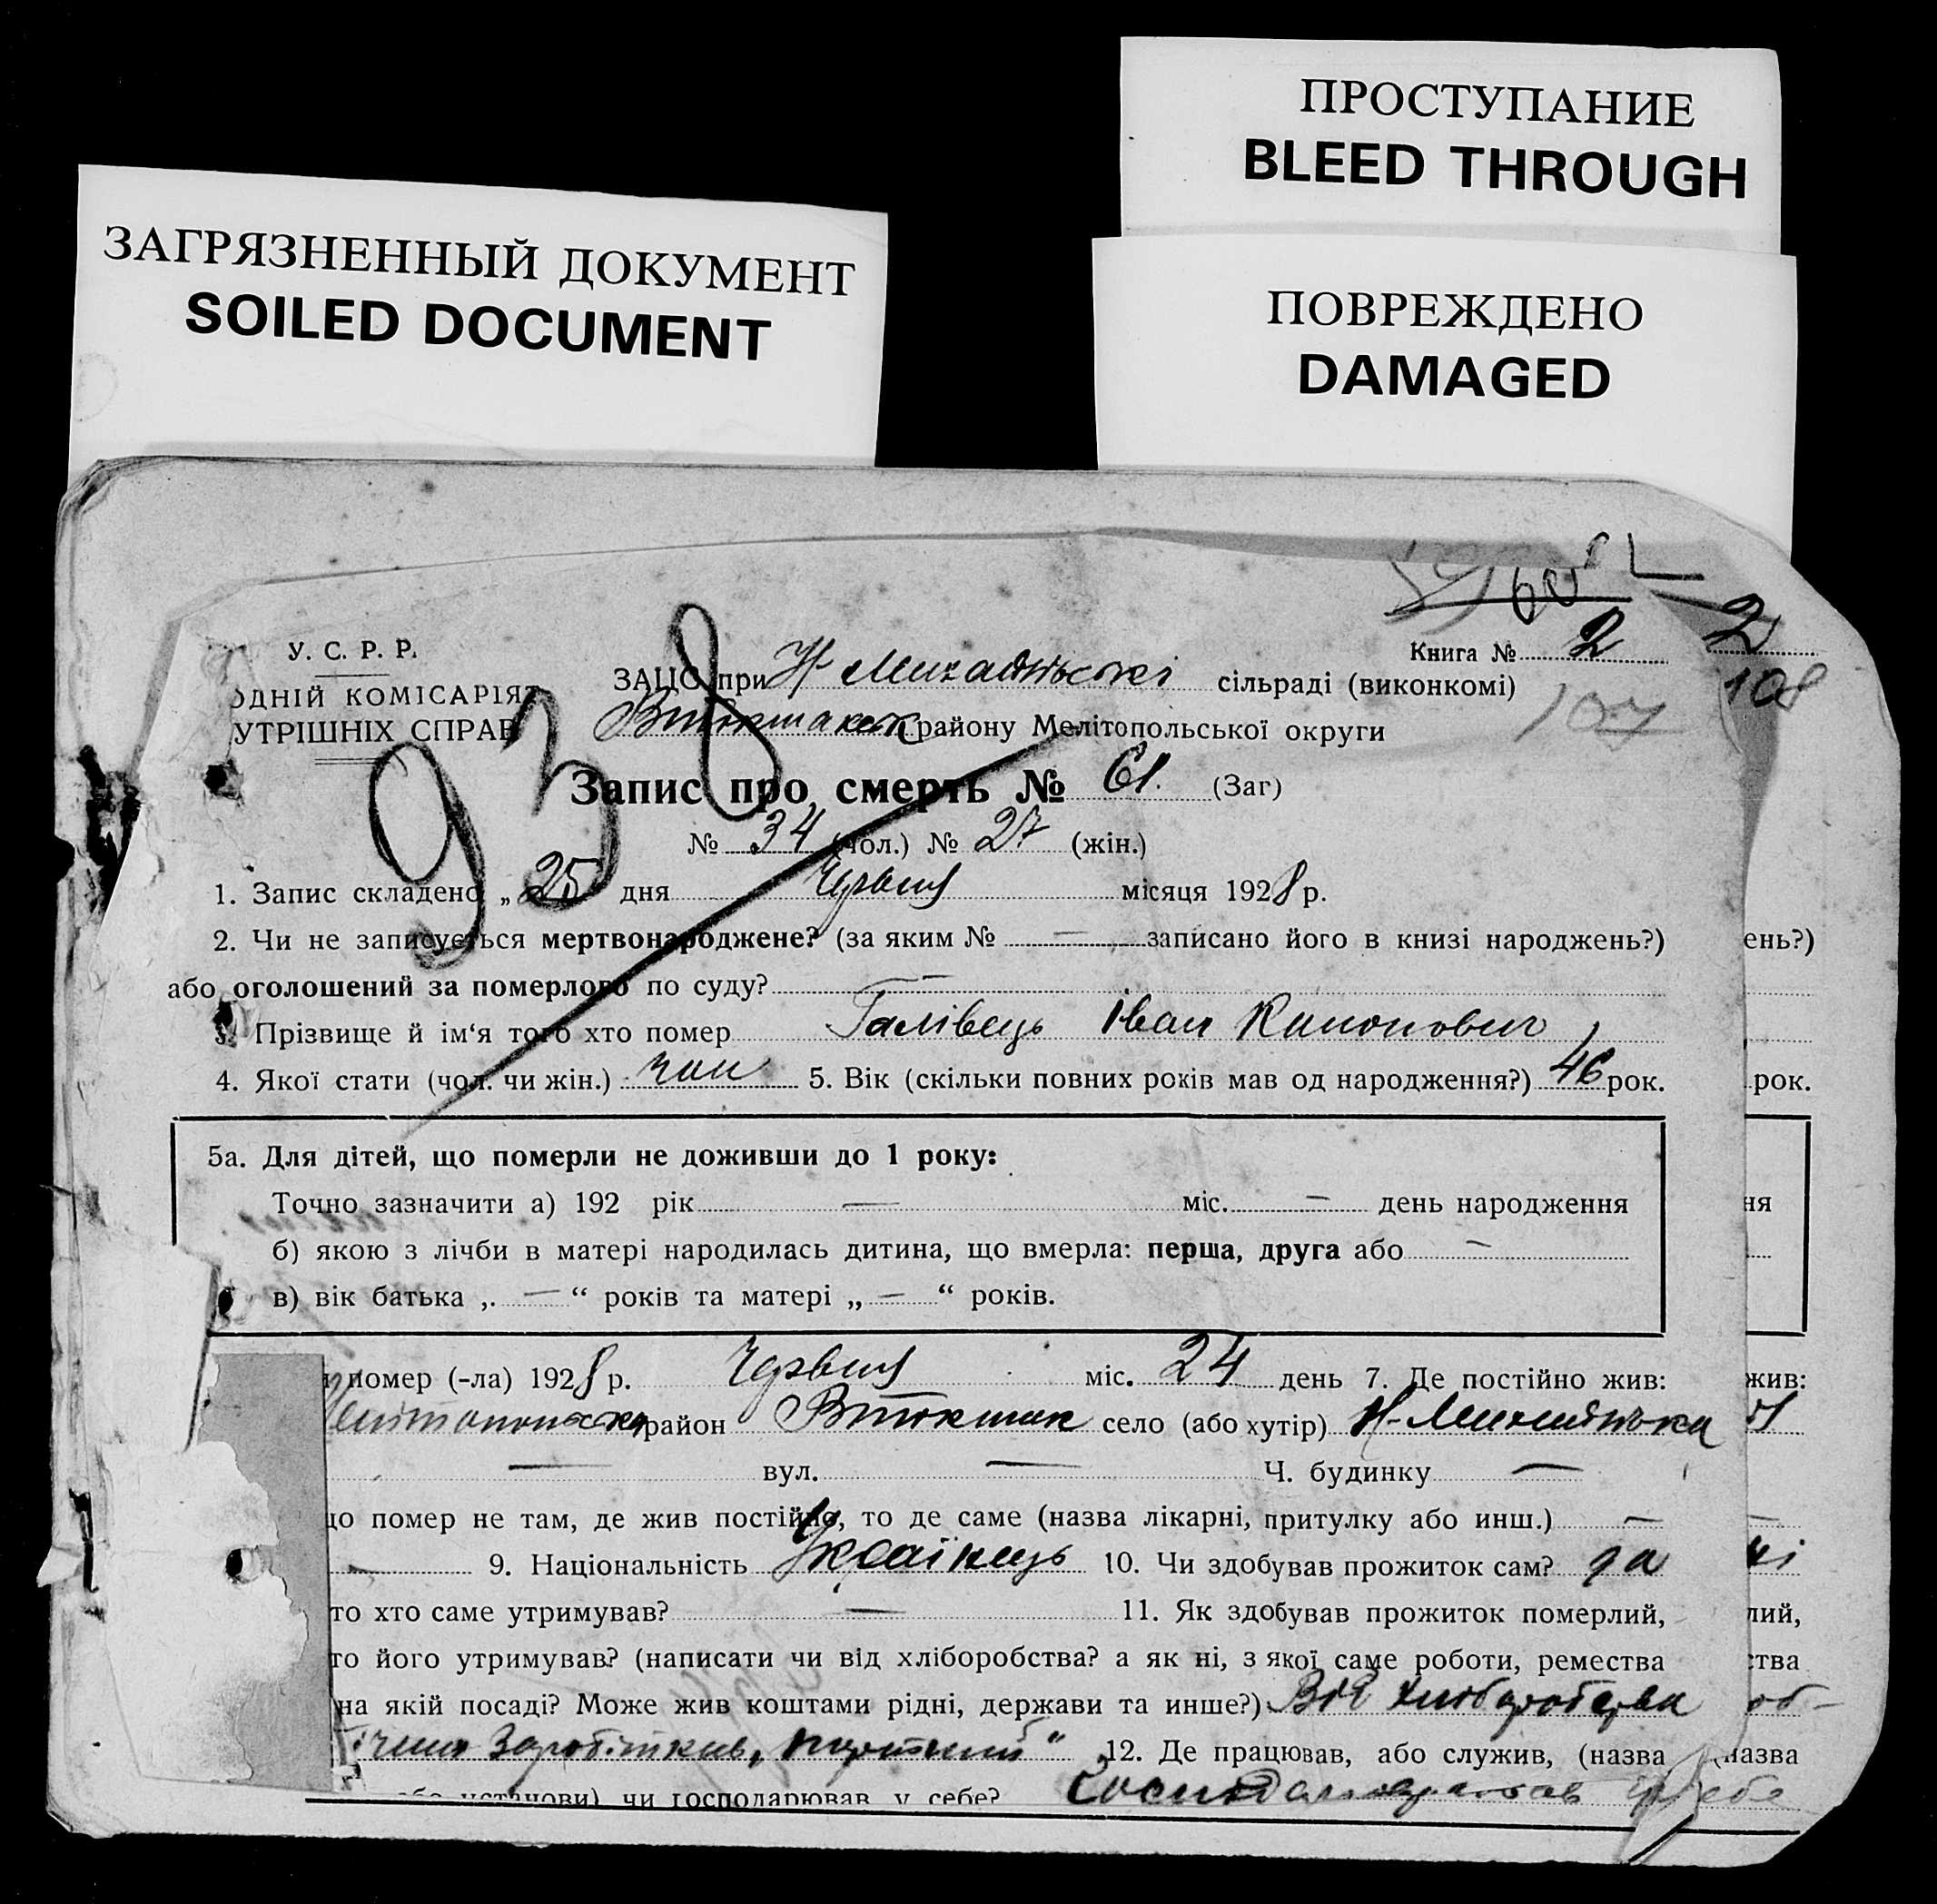 ПРОСТУПАНИЕ
BLEED THROUGH
ЗАГРЯЗНЕННЫЙ ДОКУМЕНТ
SOILED DOCUMENT
ПОВРЕЖДЕНО
DAMAGED
60
У. С. Р. Р.
ОДНІЙ КОМІСАРІЯТ
УТРІШНІХ СПРАВ
Книга № 2
2
108
107
938
ЗАЦС при Н-Михайлівські сільраді (виконкомі)
району Мелітопольської округи
Запис про смерть № 61. (Заг)
№ 34 (чол.) № 27 (жін.)
1. Запис складено „25 дня Червня місяця 1928 р.
2. Чи не записується мертвонароджене? (за яким № — записано його в книзі народжень?)
ень?)
або оголошений за померлого по суду?
3. Прізвище й ім'я того хто помер Галівець Іван Кононович
4. Якої стати (чол. чи жін.) чол 5. Вік (скільки повних років мав од народження?) 46 рок.
рок.
5а. Для дітей, що померли не доживши до 1 року:
Точно зазначити а) 192 рік — міс. — день народження
ня
б) якою з лічби в матері народилась дитина, що вмерла: перша, друга або —
в) вік батька „ — “ років та матері „ — “ років.
помер (-ла) 1928 р. Червня міс. 24 день 7. Де постійно жив:
жив:
район В Токмак село (або хутір) Н-Михайлівка
— вул. — Ч. будинку —
що помер не там, де жив постійно, то де саме (назва лікарні, притулку або инш.) —
— 9. Національність Українець 10. Чи здобував прожиток сам? да
то хто саме утримував? — 11. Як здобував прожиток померлий,
лий,
то його утримував? (написати чи від хліборобства? а як ні, з якої саме роботи, ремества
ства
на якій посаді? Може жив коштами рідні, держави та инше?) Від хліборобства
об-
заробітків, 12. Де працював, або служив, (назва
(назва
або установи) чи господарював у себе? Господарював у себе